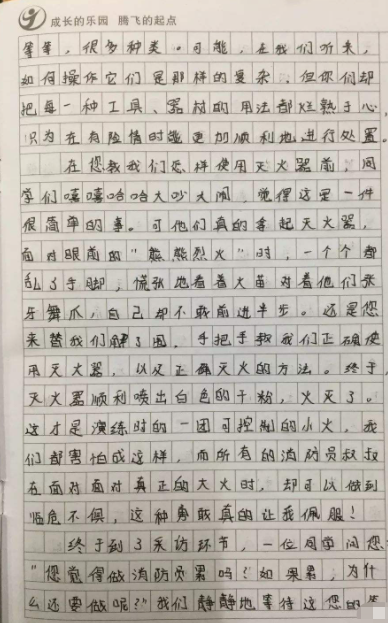 成长的乐园 腾飞的起点
等等，很多种类。可能，在我们听来，
如何操作它们是那样的复杂，但你们却
把每一种工具、器材的用法都烂熟于心，
只为在有险情时能更加顺利地进行处置。
在您教我们怎样使用灭火器前，同
学们嘻嘻哈哈大吵大闹，觉得这是一件
很简单的事。可他们真的拿起灭火器，
面对眼前的“熊熊烈火”时，一个个都
乱了手脚，慌张地看着大苗对着他们张
牙舞爪，自己却不敢前进半步。还是您
来替我们解了围，手把手教我们正确使
用灭火器，以及正确灭火的方法。终于，
灭火器顺利喷出白色的干粉，火灭了。
这才是演练时的一团可控制的小火，我
们都害怕成这样，而所有的消防员叔叔
在面对面对真正的大火时，却可以做到
临危不惧，这种勇敢真的让我佩服！
终于到了采访环节，一位同学问您：
“您觉得做消防员累吗？如果累，为什
么还要做呢？”我们静静地等待这您的